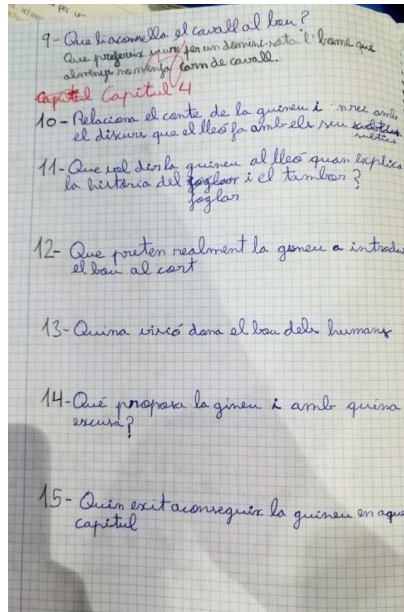 9-Que li aconsella el cavall al bou?
Que prefereix viure per un domini sota l'home que
almenys no menja carn de cavall.
Capitul Capitul 4
10-Relaciona el conte de la guineu i amb
el discurs que el lleó fa amb els seu
11-Que vol dir la guineu al lleó quan explica
la historia del joglar i el tambor?
joglar
12-Que preten realment la guneu a introdu
el bou al cort
13-Quina visió dona el bou dels humans
14-Què proposa la gineu i amb quina
escusa?
15-Quin exit aconsegueix la guineu en aque
capitul